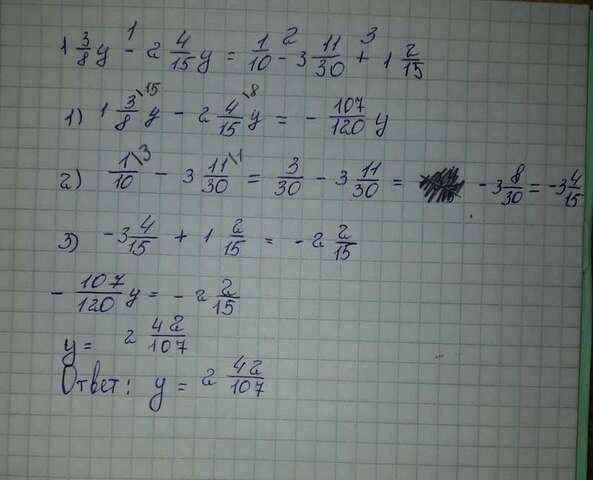 1 3/8 y - 2 4/15 y = 1/10 - 3 11/30 + 1 2/15
1) 1 3/8 \15 y - 2 4/15 \8 y = - 107/120 y
2) 1/10 \3 - 3 11/30 \1 = 3/30 - 3 11/30 = - 3 8/30 = - 3 4/15
3) - 3 4/15 + 1 2/15 = - 2 2/15
- 107/120 y = - 2 2/15
y = 2 42/107
Ответ: y = 2 42/107